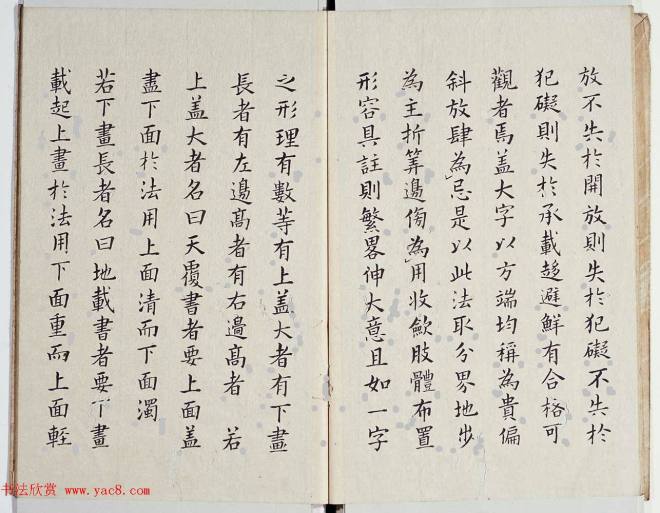 放不失於開放則失於犯礙不失於
犯礙則失於承載趍避鮮有合格可
觀者焉盖大字以方端均稱為貴偏
斜放肆為忌是以此法取分界地步
為主折筭邊傍為用收歛肢體布置
形容具註則繁畧伸大意且如一字
之形理有數等有上盖大者有下畫
長者有左邊高者有右邊高者 若
上盖大者名曰天覆書者要上面盖
盡下面於法用上面清而下面濁
若下畫長者名曰地載書者要下畫
載起上畫於法用下面重而上面輕
书法欣赏 www.yac8.com